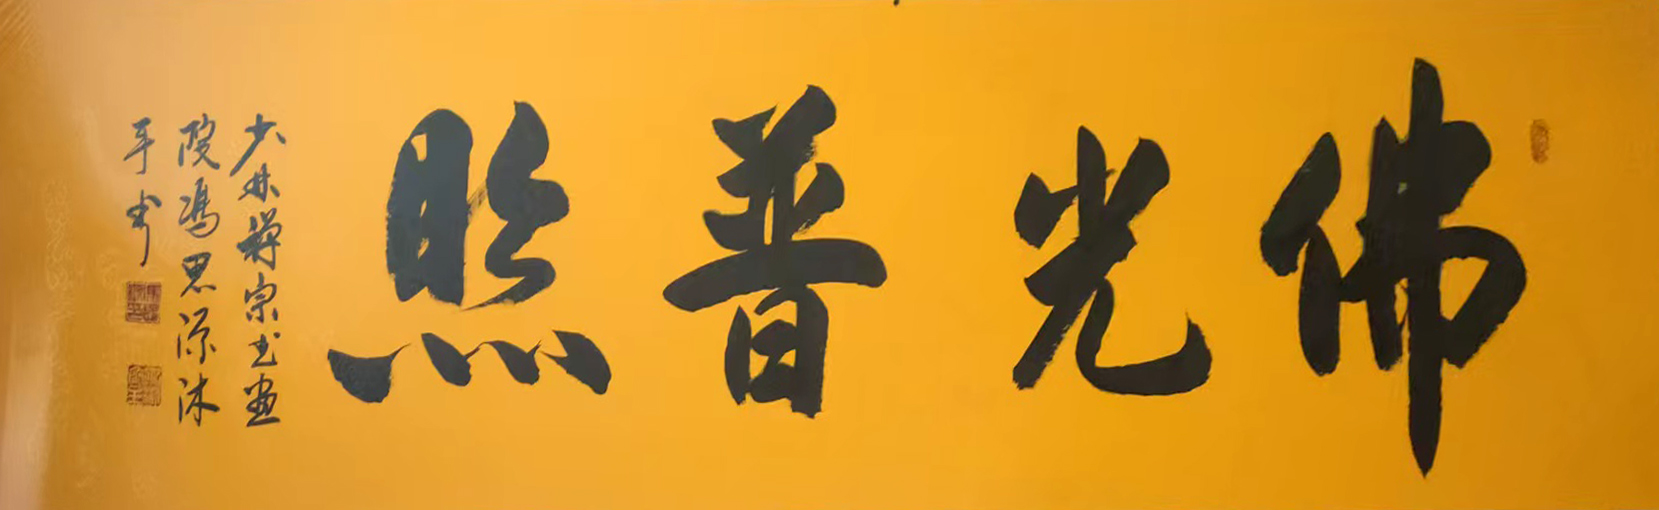 佛光普照
少林禅宗书画
院冯思源沐
手书